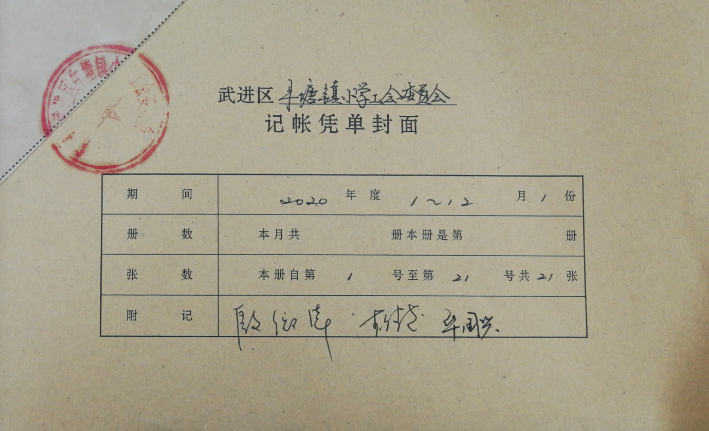 武进区 牛塘镇小学工会委员会
记帐凭单封面
期 间 2020 年 度 1~12 月 1 份
册 数 本月共 册本册是第 册
张 数 本册自第 1 号至第 21 号共 21 张
附 记